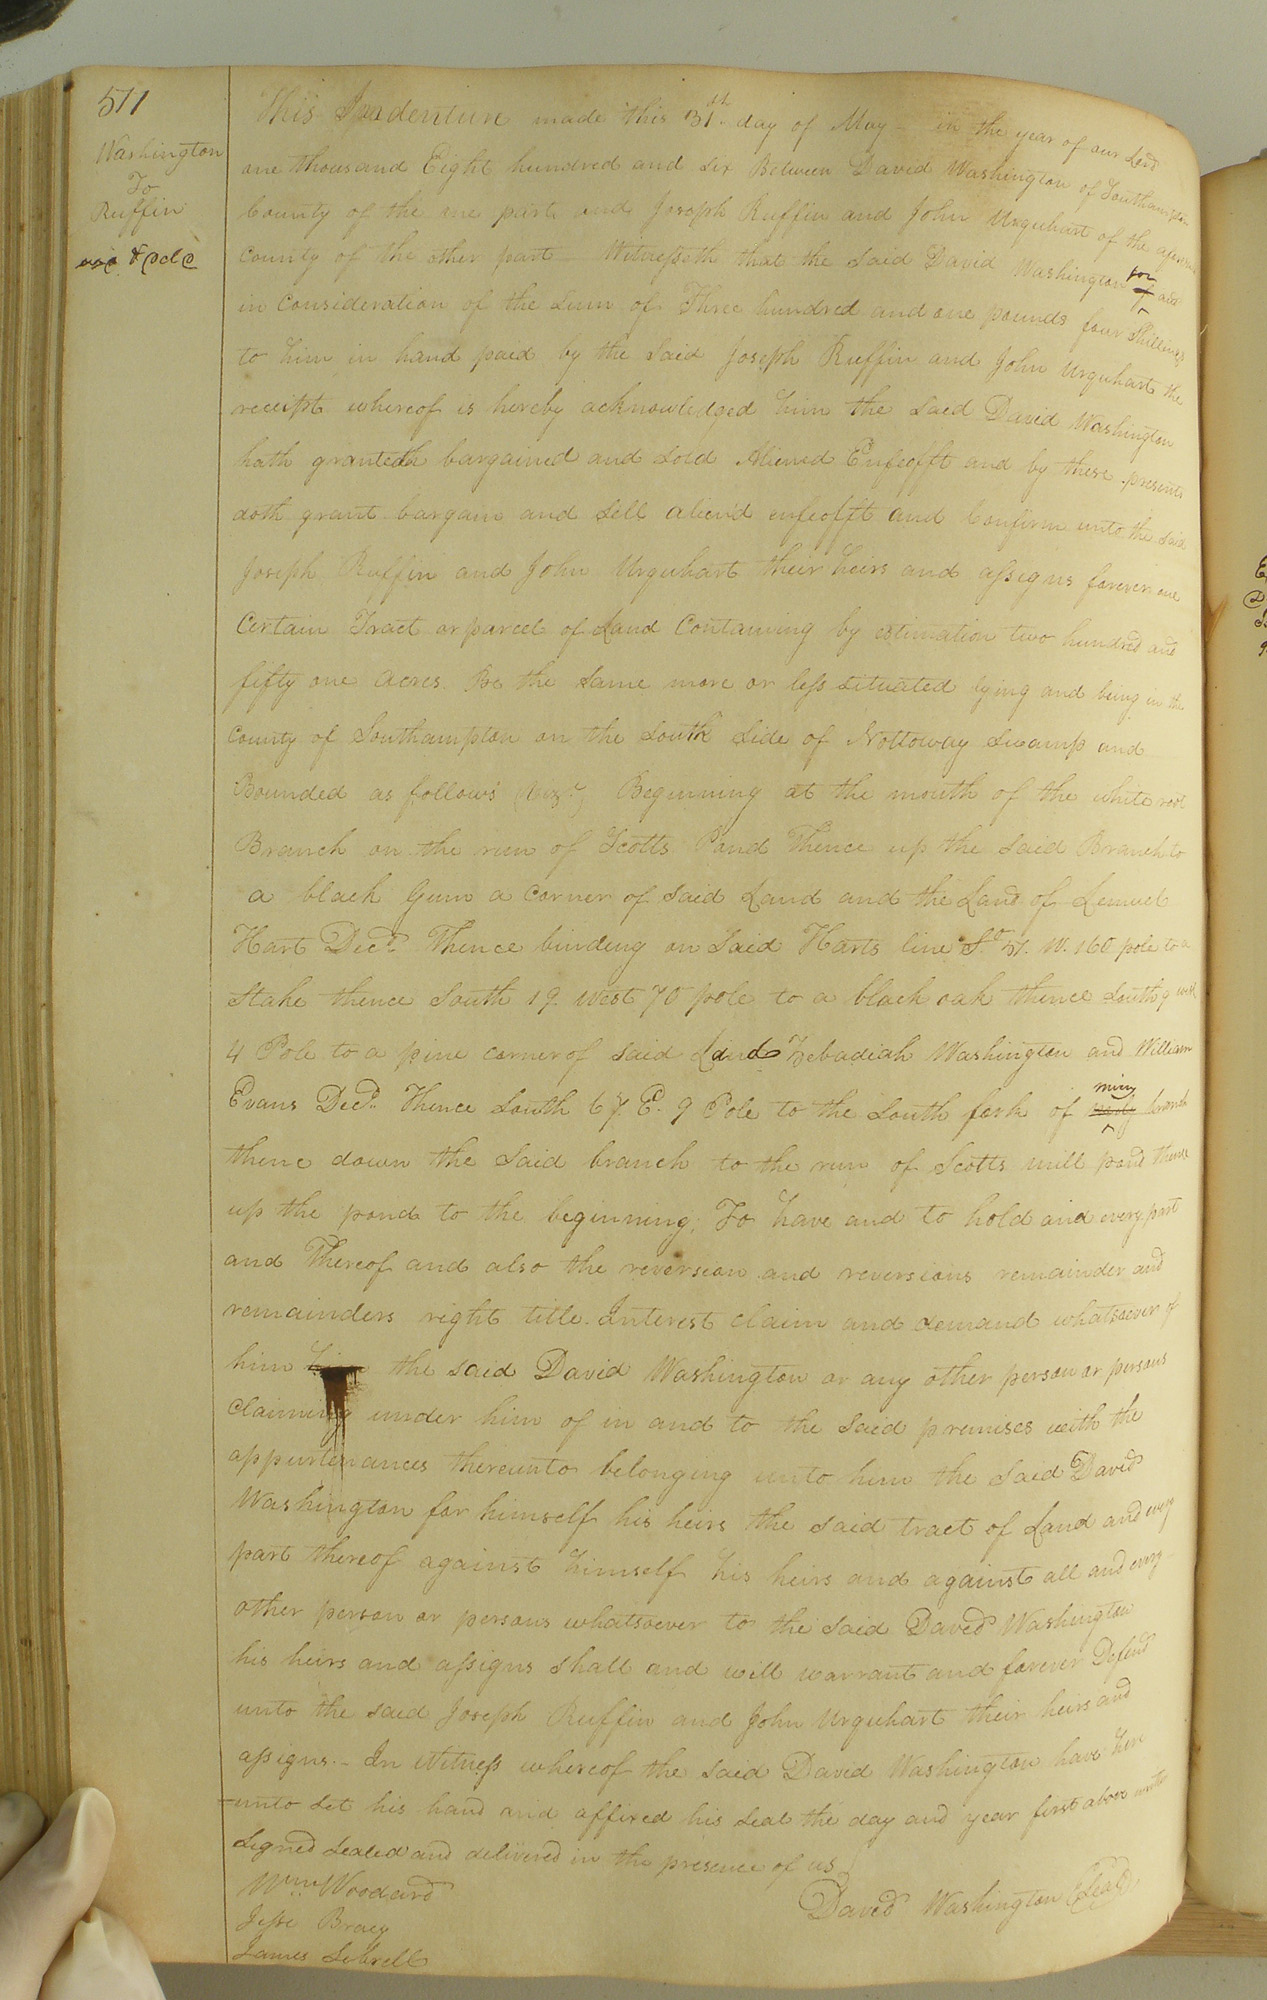 511
Washington
To
Ruffin
This Indenture made this 31st day of May - in the year of our Lord
one thousand Eight hundred and six Between David Washington of Southampton
County of the one part and Joseph Ruffin and John Urquhart of the aforesaid
County of the other part Witnesseth that the said David Washington for and
in Consideration of the sum of Three hundred and one pounds four Shillings
to him in hand paid by the Said Joseph Ruffin and John Urquhart the
receipt whereof is hereby acknowledged him the said David Washington
hath granteth bargained and sold Aliened Enfeofft and by these presents
doth grant bargain and sell aliend enfeofft and Confirm unto the said
Joseph Ruffin and John Urquhart their heirs and assigns forever one
Certain Tract or parcel of Land Containing by estimation two hundred and
fifty one acres Be the same more or less situated lying and being in the
County of Southampton on the South Side of Nottoway Swamp and
Bounded as follows (Vizt.) Beginning at the mouth of the white root
Branch on the run of Scotts Pond Thence up the said Branch to
a black Gum a corner of said Land and the Land of Lemuel
Hart Decd. Thence binding on said Harts line So. 51. W. 160 pole to a
Stake thence South 19 West 70 pole to a black oak thence South 9 west
4 Pole to a pine corner of said Land Zebadiah Washington and William
Evans Decd. Thence South 67 E. 9 Pole to the South fork of miry branch
thence down the said branch to the run of Scotts mill pond thence
up the pond to the beginning; To have and to hold and every part
and Thereof and also the reversion and reversions remainder and
remainders right title Interest claim and demand whatsoever of
him him the said David Washington or any other person or persons
Claiming under him of in and to the said premises with the
appurtenances thereunto belonging unto him the said David
Washington for himself his heirs the said tract of Land and every
part thereof against himself his heirs and against all and every
other person or persons whatsoever to the said David Washington
his heirs and assigns shall and will warrant and forever Defend
unto the said Joseph Ruffin and John Urquhart their heirs and
assigns. - In Witness whereof the said David Washington have here
unto set his hand and affixed his seal the day and year first above
Signed sealed and delivered in the presence of us
Wm. Woodard
David Washington (Seal)
Jesse Bracy
James Sebrell